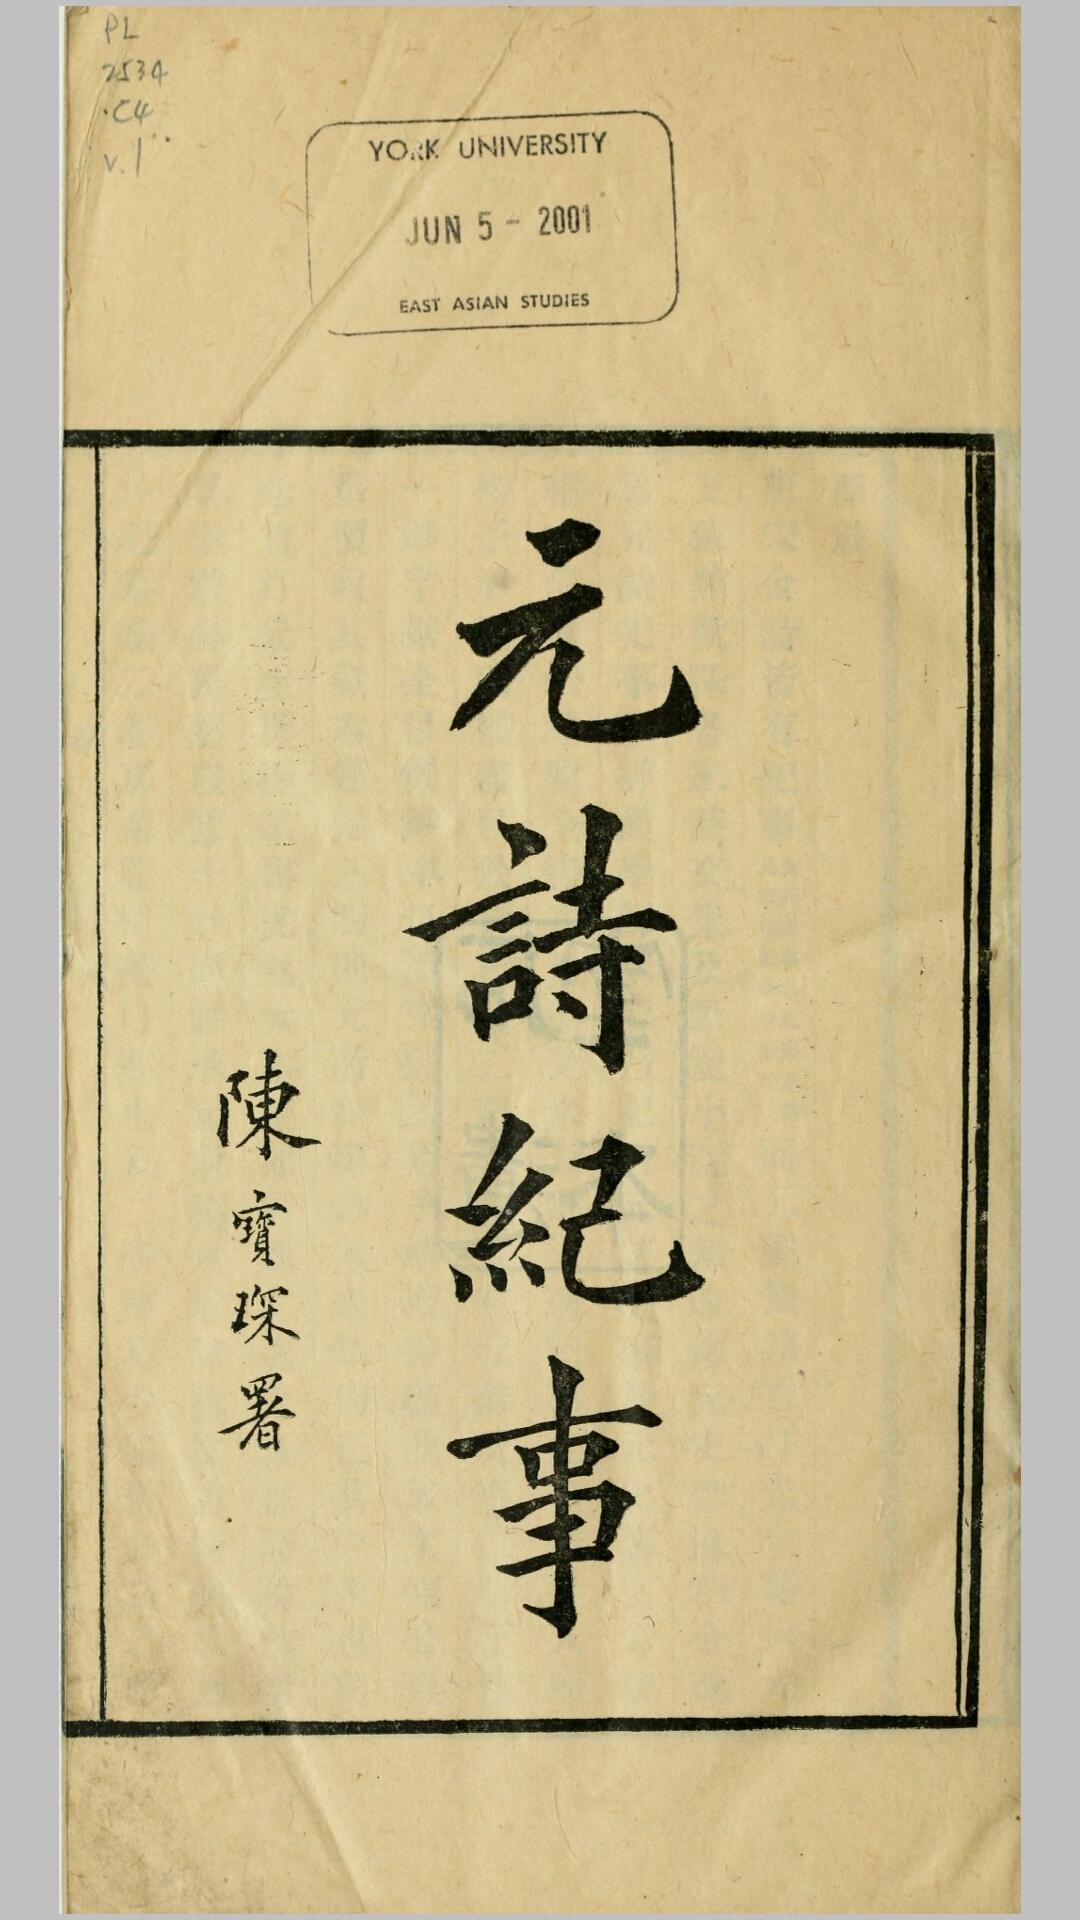 PL
2534
.C4
v.1
YORK UNIVERSITY
JUN 5 - 2001
EAST ASIAN STUDIES
元詩紀事
陳寶琛署